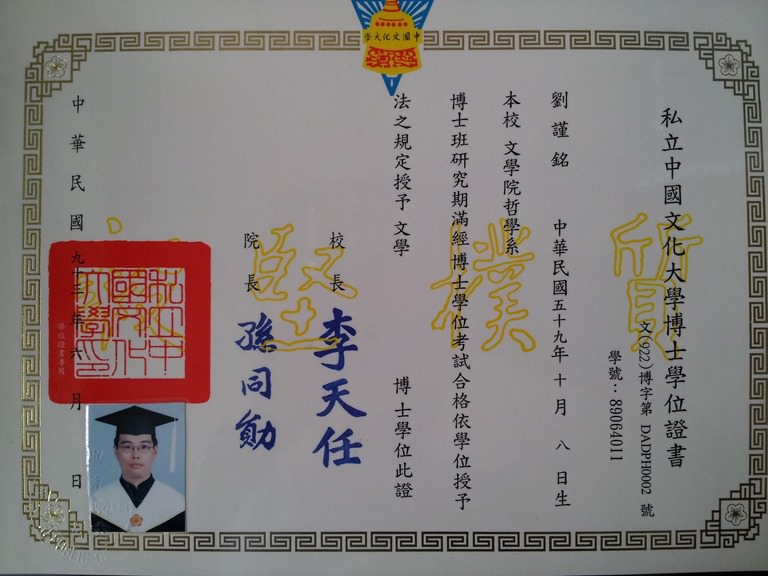 中國文化大學
私立中國文化大學博士學位證書
文(922)博字第 DADPH0002 號
學號：89064011
劉謹銘 中華民國五十九年十月八日生
本校 文學院哲學系
博士班研究期滿經博士學位考試合格依學位授予
法之規定授予 文學 博士學位此證
校長 李天任
院長 孫同勛
中華民國九十三年六月 日
私立中
國文化
大學印
學位證書專用
質樸堅毅